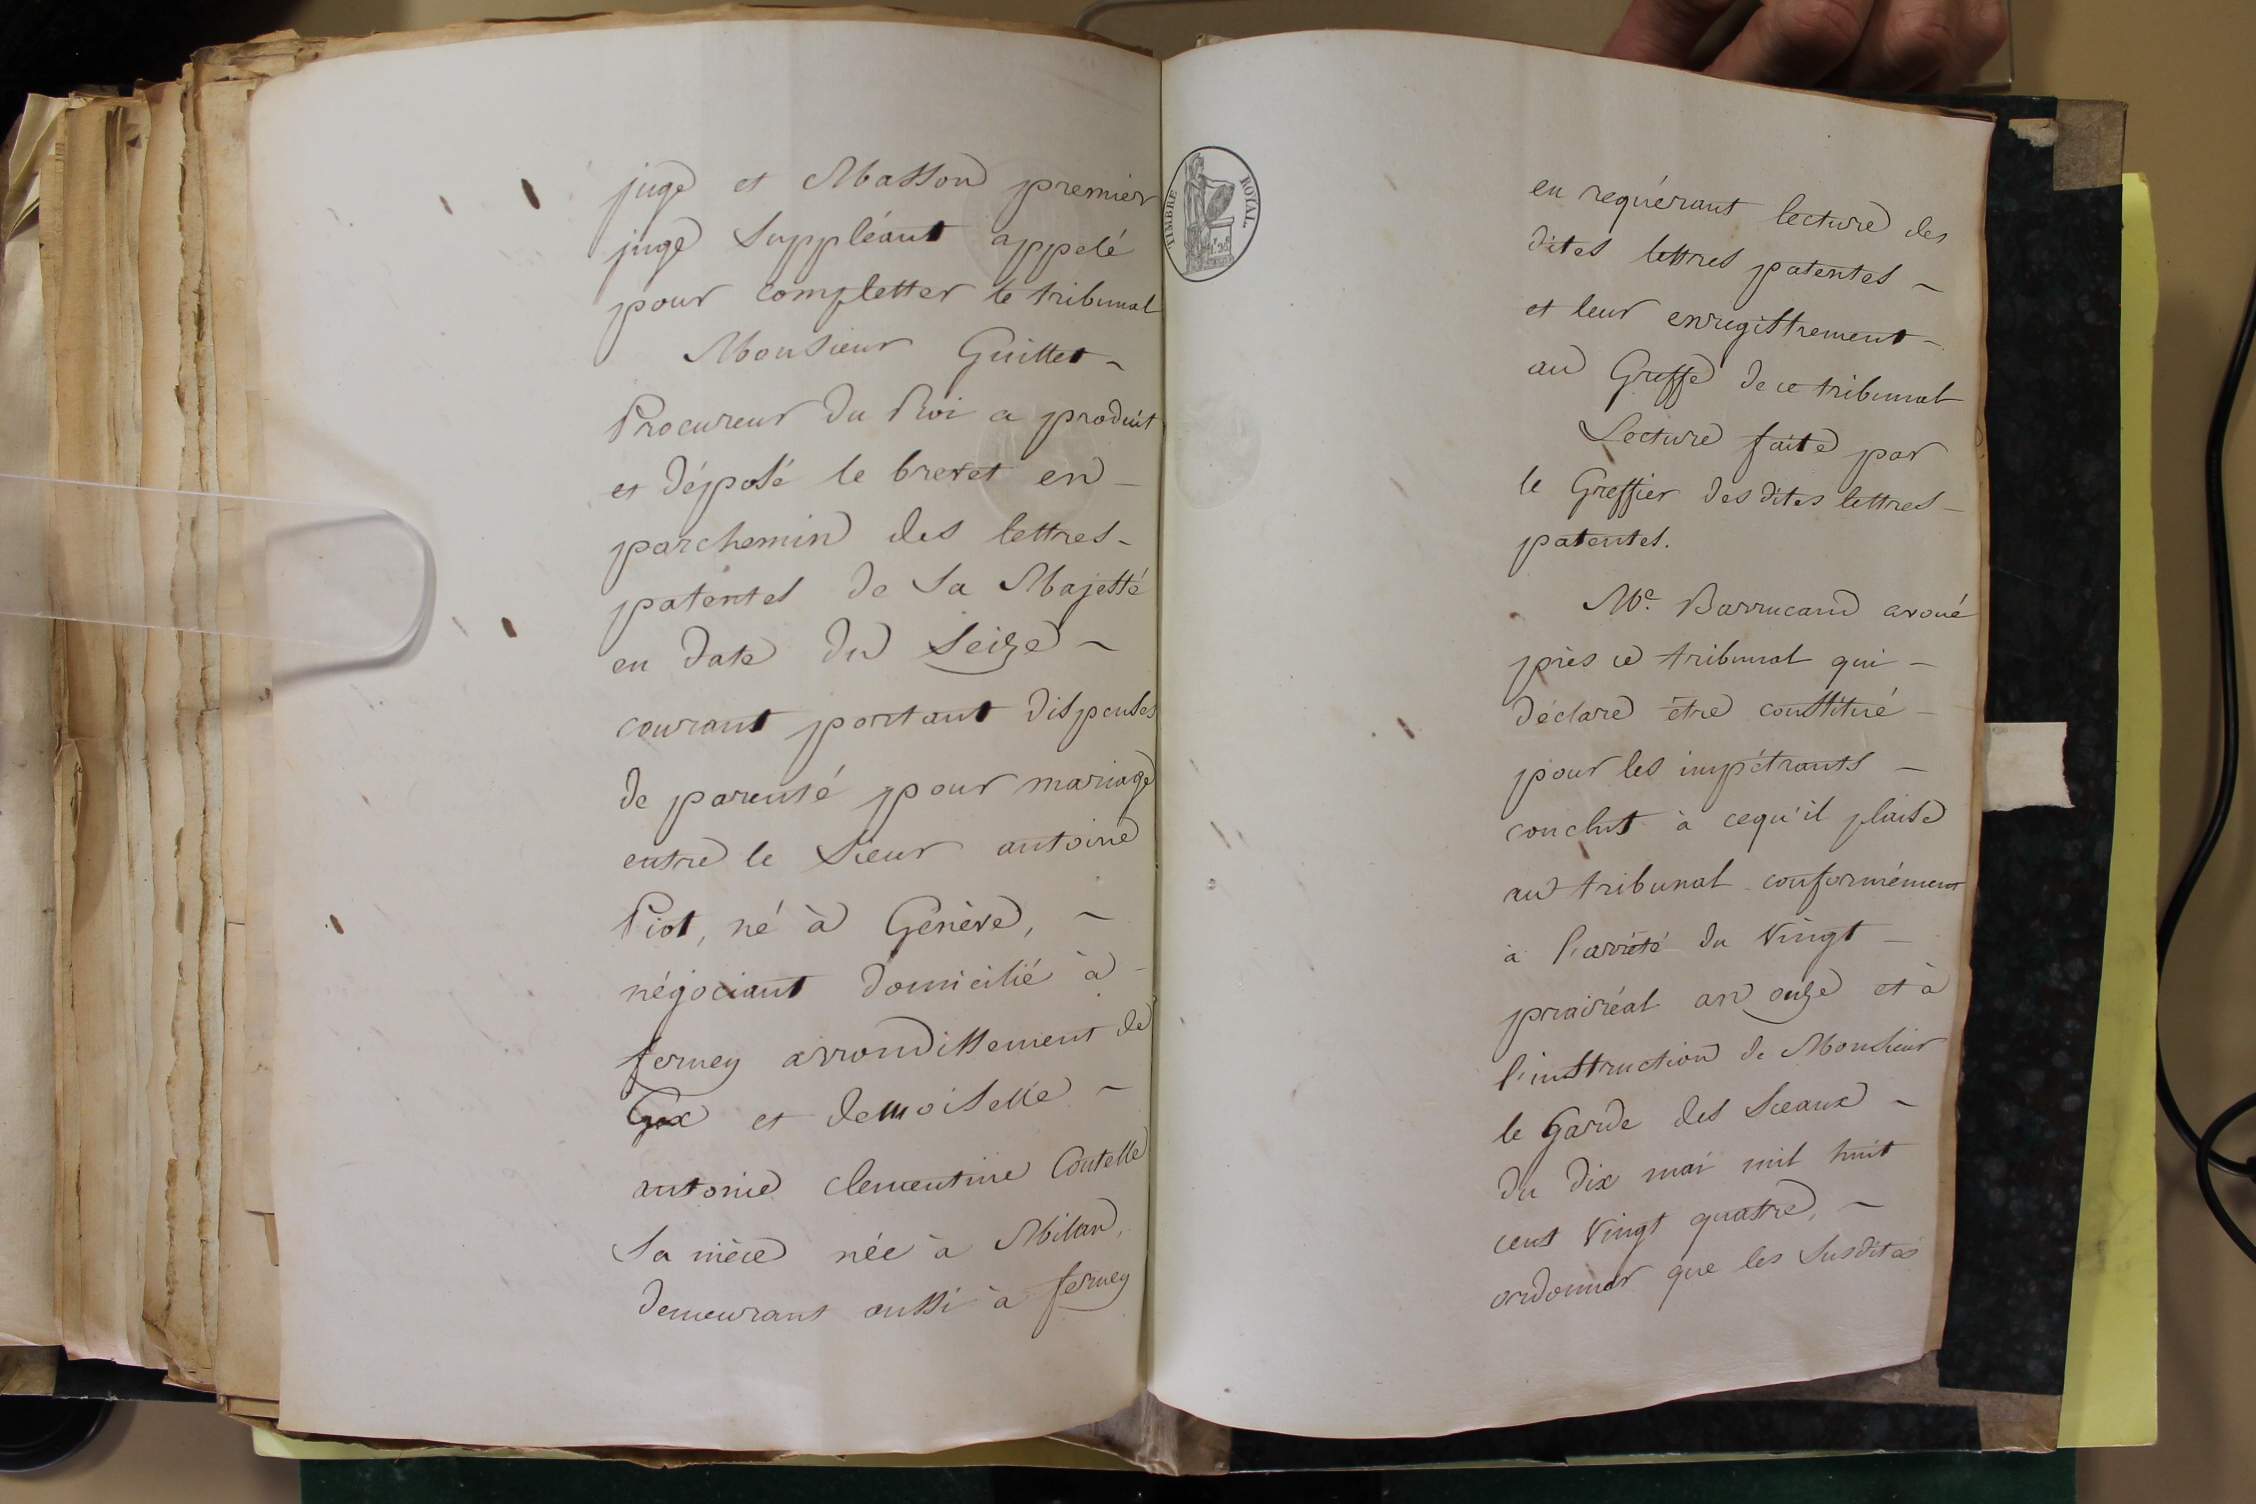 juge et Masson premier
juge suppléant appelé
pour completter le tribunal
Monsieur Guillet
Procureur du Roi a produit
et déposé le brevet en
parchemin des lettres-
patentes de Sa Majesté
en date du Seize
courant portant dispenses
de parenté pour mariage
entre le Sieur antoine
Piot, né à Genève,
négociant domicilié à
ferney arrondissement de
Gex et demoiselle
antonie clementine Coutelle
sa nièce née à Milan,
demeurant aussi à ferney
TIMBRE ROYAL
en requérant lecture des
dites lettres patentes
et leur enregistrement
au Greffe de ce tribunal
Lecture faite par
le Greffier desdites lettres
patentes.
Me. Barrucand avoué
près ce tribunal qui
déclare être constitué
pour les impétrants
conclut à cequ'il plaise
au tribunal conformément
à l'arrêté du vingt
prairéal an onze et à
l'instruction de Monsieur
le Garde des Sceaux
du dix mai mil huit
cent vingt quatre,
ordonner que les susdites